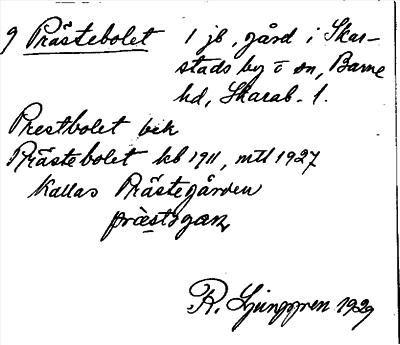 9 Prästebolet 1 jb. gård i Skar-
stads by o sn, Barne
hd, Skarab. l.
Prestbolet bek
Prästebolet kb 1911, mtl 1927
Kallas Prästegården
R. Ljunggren 1929